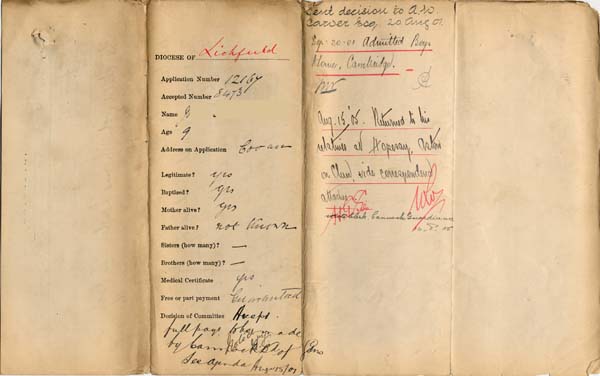 DIOCESE OF Lichfield
Application Number 12167
Accepted Number 8473
Name G
Age 9
Address on Application
Legitimate? yes
Baptised? yes
Mother alive? yes
Father alive? not known
Sisters (how many)? —
Brothers (how many)? —
Medical Certificate yes
Free or part payment Guaranteed
Decision of Committee Accept
full page to be made
by Cannock Bd of Gns
See agenda Aug 15/01
Sent decision to A.W.
Carver Esq. 20 Aug 01
Sep. 20-01 Admitted Boys
Home, Cambridge.
Aug. 15, '05. Returned to his
relatives at
on Chand, vide correspondence
attached
Clerk Cannock Guardians